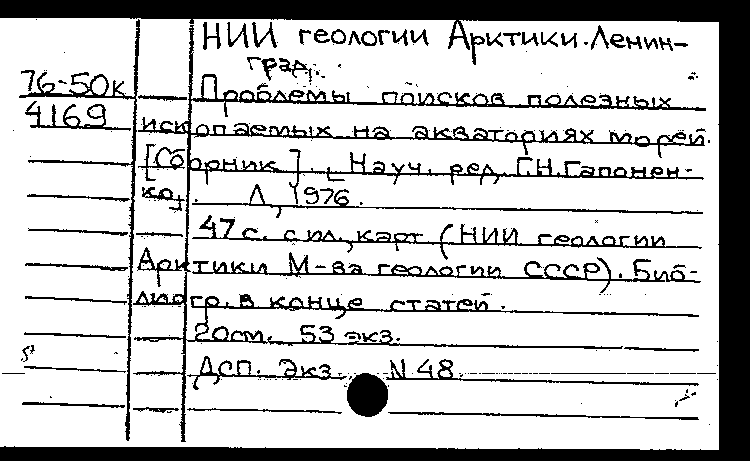 НИИ геологии Арктики. Ленин-
град.
76-50к
Проблемы поисков полезных
4169
ископаемых на акваториях морей.
[Сборник]. [Науч. ред. Г.Н. Гапонен-
ко]. Л., 1976.
47 с. с ил., карт (НИИ геологии
Арктики М-ва геологии СССР). Биб-
лиогр. в конце статей.
20см. 53 экз.
Дсп. Экз. N 48